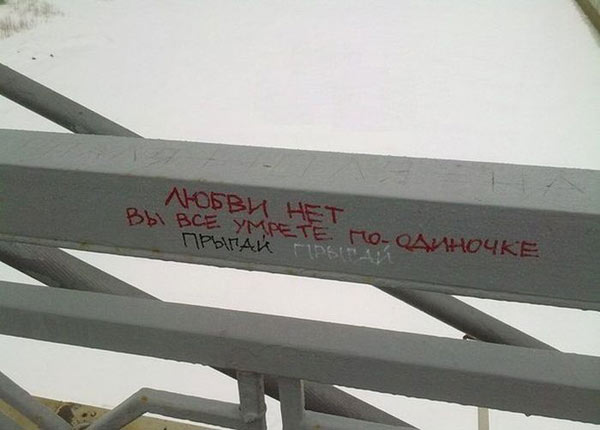 ЛЮБВИ НЕТ
ВЫ ВСЕ УМРЕТЕ ПО-ОДИНОЧКЕ
ПРЫГАЙ ПРЫГАЙ